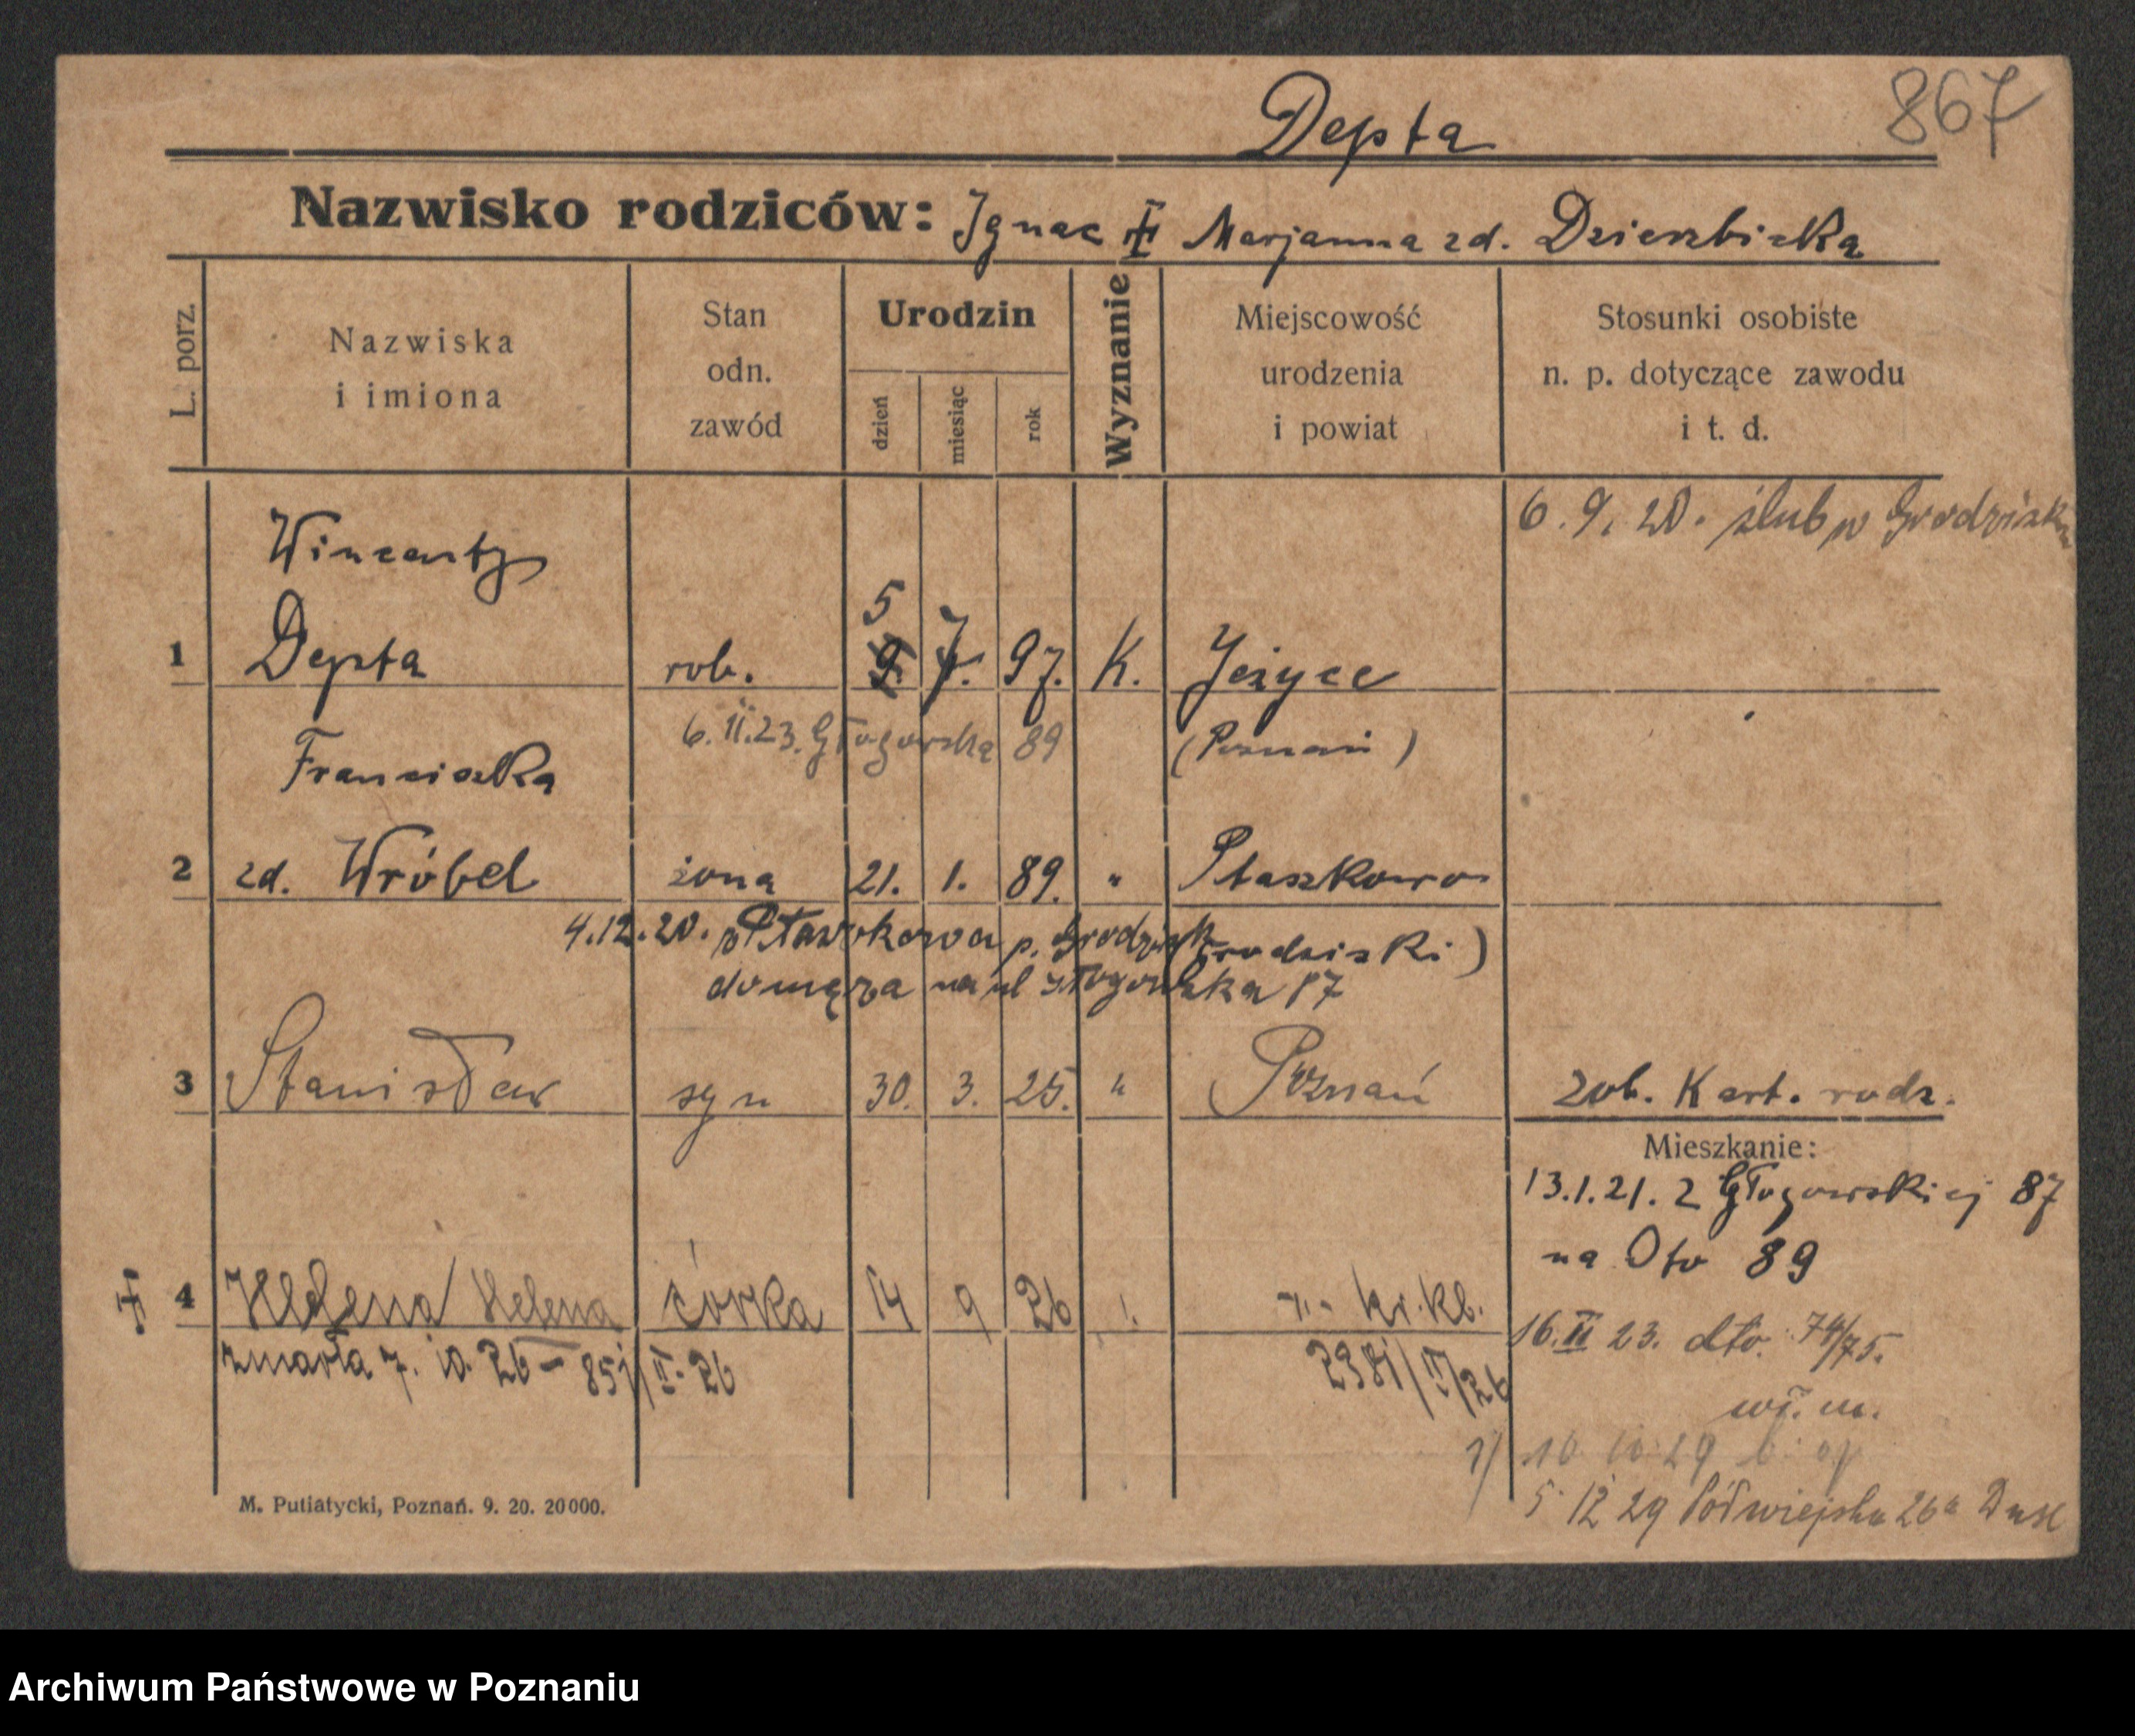 867
Depta
Nazwisko rodziców: Ignac Marjanna zd. Dzierzbicka
L. porz.
Nazwiska i imiona
Stan odn. zawód
Urodzin
dzień
miesiąc
rok
Wyznanie
Miejscowość urodzenia i powiat
Stosunki osobiste n. p. dotyczące zawodu i t. d.
6. 9. 20. ślub w Grodzisku
Wincenty
5
1 Depta rob. 7. 97. K. Jeżyce
6. II. 23. Głogowska 89 (Poznań)
Franciszka
2 zd. Wróbel żona 21. 1. 89. " Ptaszkowo
4.12.20. z Ptaszkowa p. Grodzisk Grodziski)
do męża na ul Głogowska 87
3 Stanisław syn 30. 3. 25. " Poznań zob. Kart. rodz.
Mieszkanie:
13.1.21. z Głogowskiej 87
na Oto 89
4 Helena Helena córka 14 9 26
zmarła 7. 10. 26 - 851/II. 26
16. II 23. dto. 74/75.
wł. m.
5 12 29 Półwiejska 26a
M. Putiatycki, Poznań. 9. 20. 20000.
Archiwum Państwowe w Poznaniu